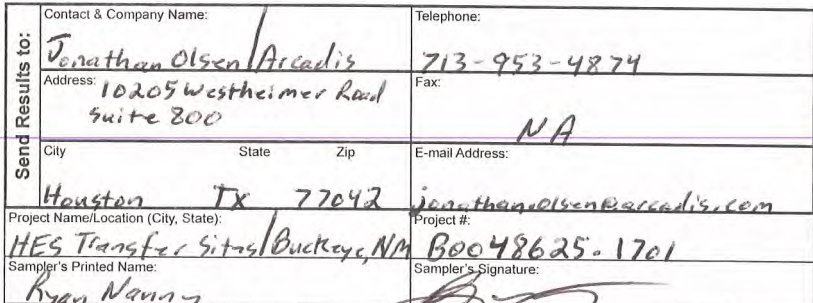 Send Results to:
Contact & Company Name:
Jonathan Olsen/Arcadis
Telephone:
713-953-4874
Address: 10205 Westheimer Road
Suite 800
Fax:
NA
City State Zip
Houston TX 77042
E-mail Address:
jonathan.olsen@arcadis.com
Project Name/Location (City, State):
HES Transfer Sites/Buckeye, NM
Project #:
B0048625.1701
Sampler's Printed Name:
Ryan Nanny
Sampler's Signature: